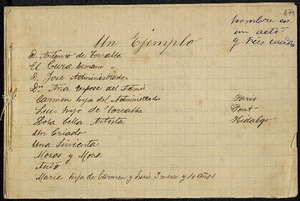 Un Ejemplo
D. Antonio de Torralba
El Cura hermano
D. José Administrador
Dña Ana esposa del Admor
Carmen hija del Administrador
Luis hijo de Torralba
Rosa bella
Un Criado
Una Sirvienta
Mozos y Moza
Maria hija de Carmen y Luis 3 meses y 4 años
en
un acto
y tres cuadros
Paris
Hidalgo